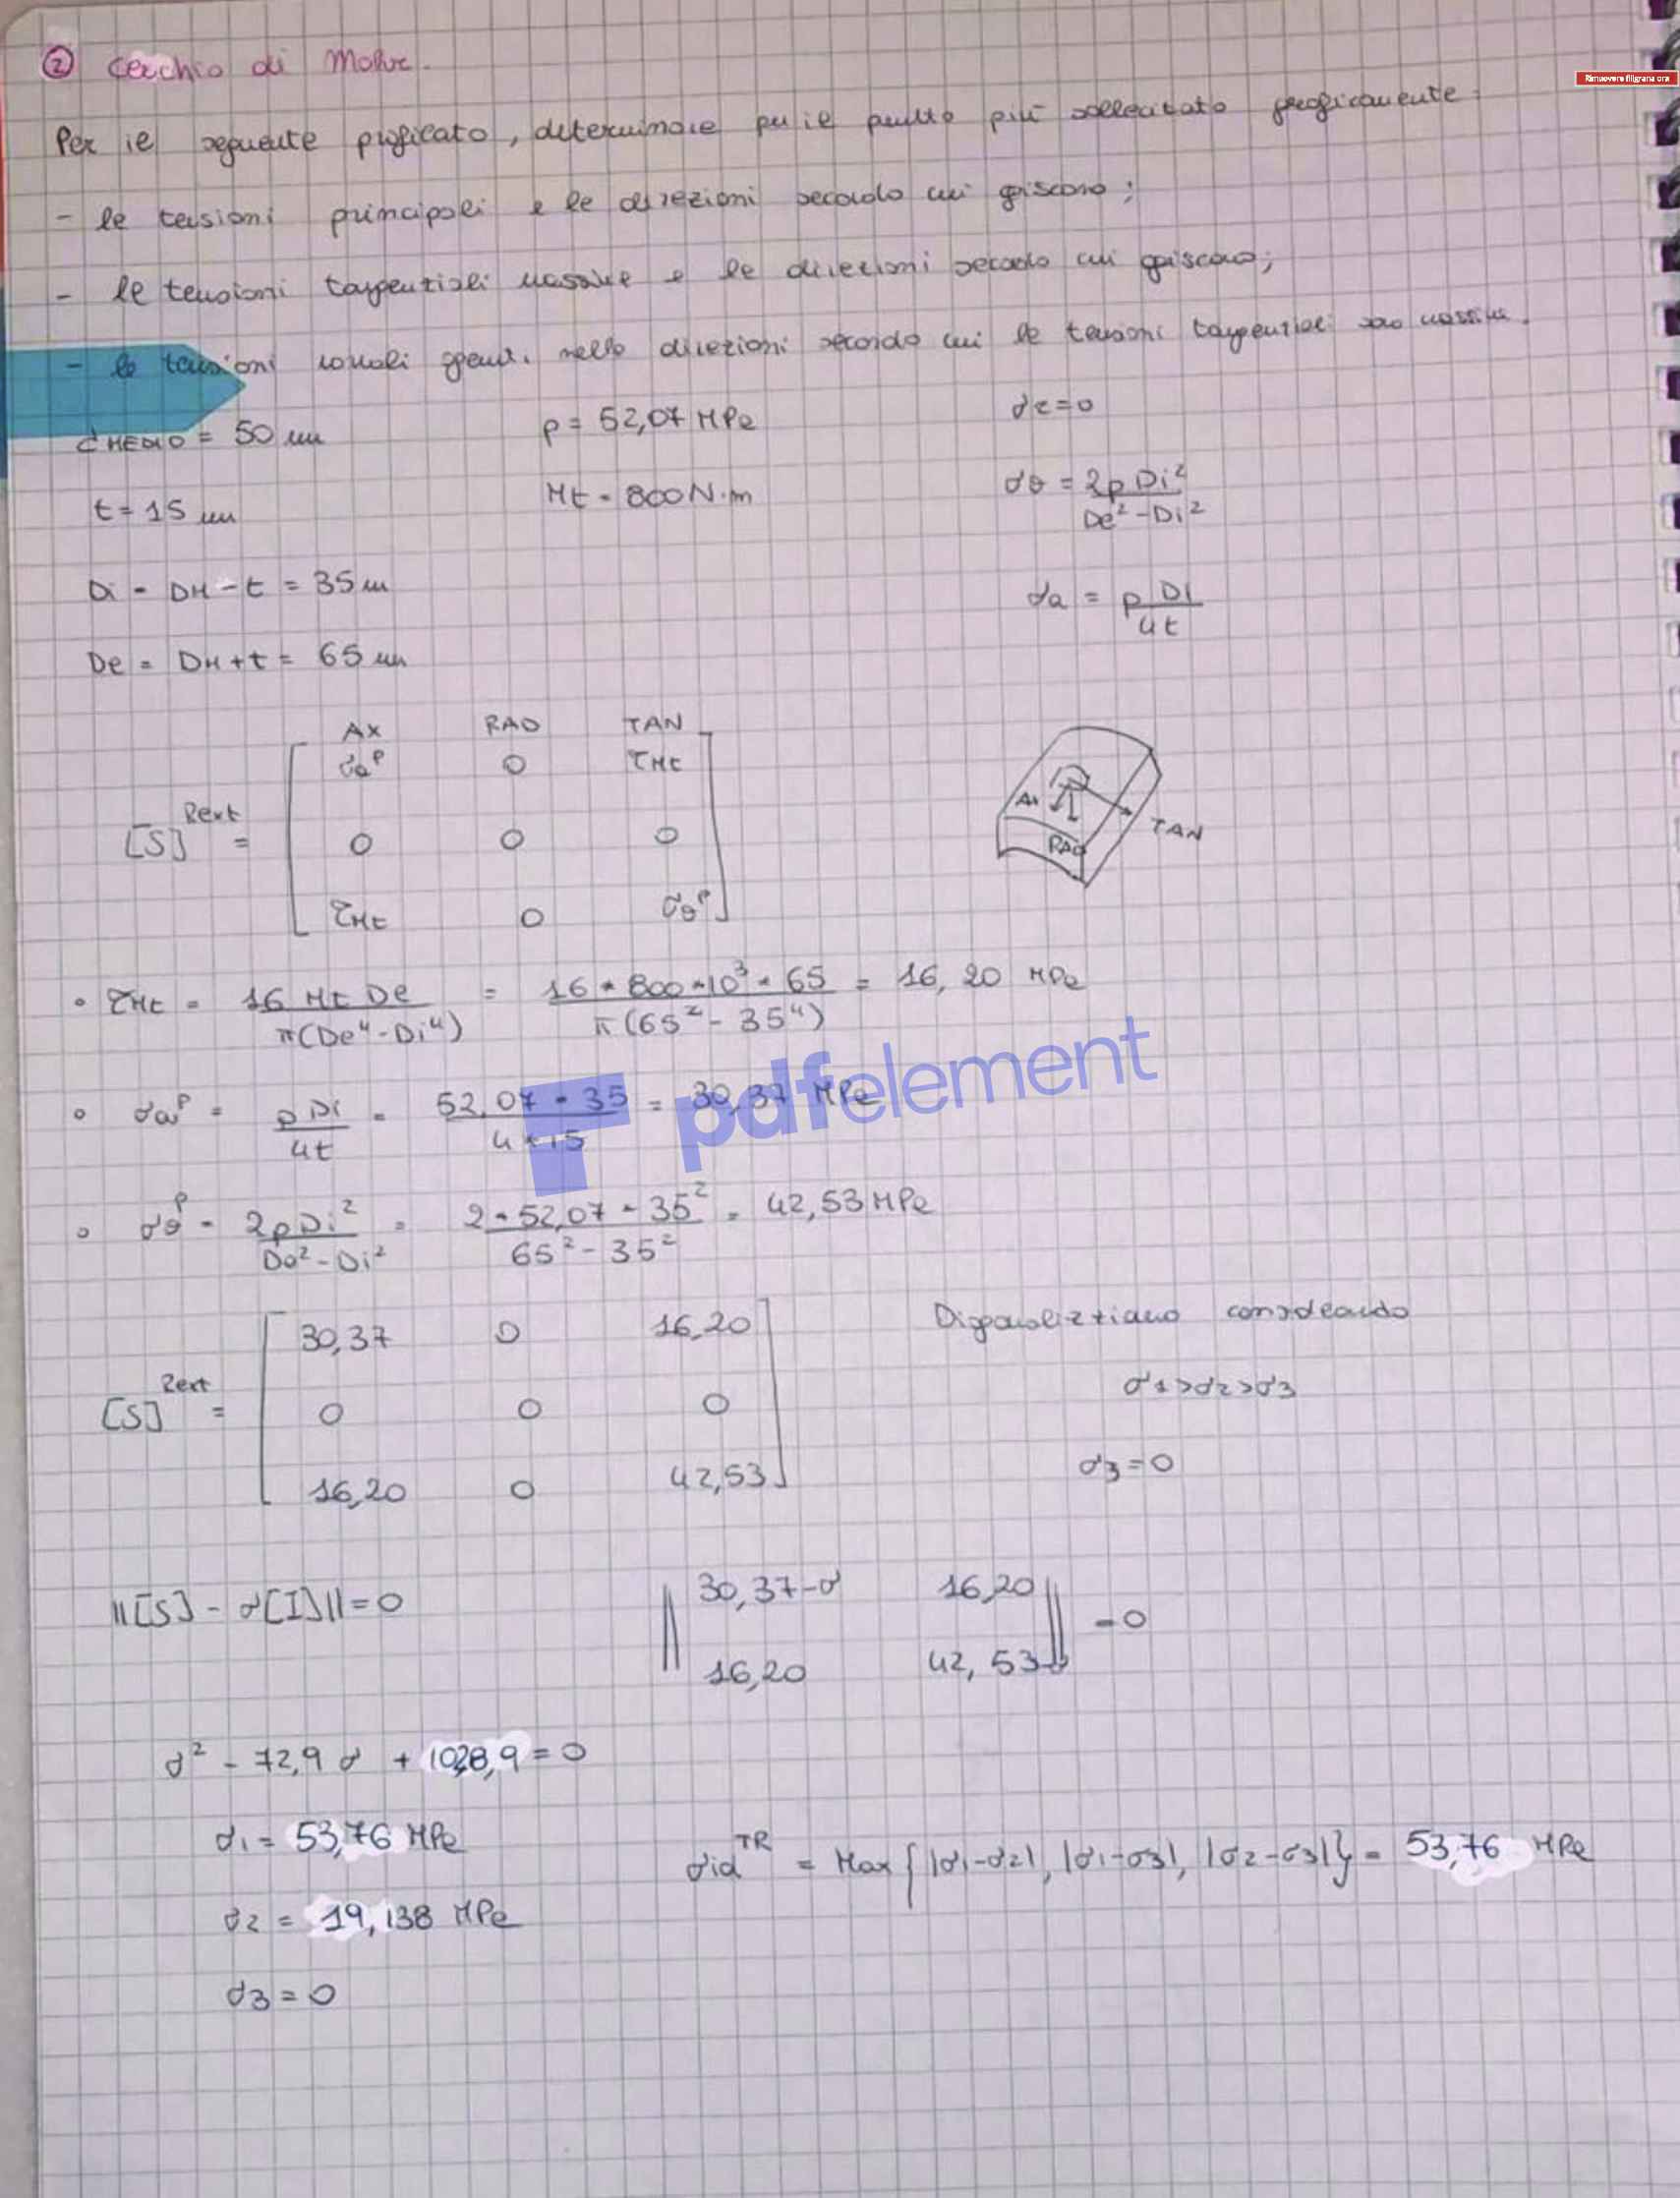 ② Cerchio di Mohr.
Rimuovere filigrana ora
Per il seguente proficato, determinare per il punto più sollecitato graficamente:
- le tensioni principali e le direzioni secondo cui agiscono;
- le tensioni tangenziali massime e le direzioni secondo cui agiscono;
- le tensioni normali agenti nelle direzioni secondo cui le tensioni tangenziali sono massime.
dMEDIO = 50 mm p = 52,07 MPa σr=0
t = 15 mm Mt = 800 N·m σθ = 2p Di² / De² - Di²
Di = DM - t = 35 mm σa = p Di / 4t
De = DM + t = 65 mm
AX RAD TAN
σaᵖ 0 τMt
[S]ᴿᵉˣᵗ = 0 0 0
τMt 0 σθᵖ
AX TAN
RAD
• τMt = 16 Mt De / π(De⁴ - Di⁴) = 16 * 800 * 10³ * 65 / π(65² - 35⁴) = 16,20 MPa
• σaᵖ = p Di / 4t = 52,07 * 35 / 4 * 15 = 30,37 MPa
pdfelement
• σθᵖ = 2p Di² / De² - Di² = 2 * 52,07 * 35² / 65² - 35² = 42,53 MPa
30,37 0 16,20 Diagonalizziamo considerando
[S]ᴿᵉˣᵗ = 0 0 0 σ1>σ2>σ3
16,20 0 42,53 σ3=0
||[S] - σ[I]||=0 || 30,37-σ 16,20 || = 0
16,20 42,53-σ
σ² - 72,9 σ + 1028,9 = 0
σ1 = 53,76 MPa σidᵀᴿ = Max {|σ1-σ2|, |σ1-σ3|, |σ2-σ3|} = 53,76 MPa
σ2 = 19,138 MPa
σ3 = 0